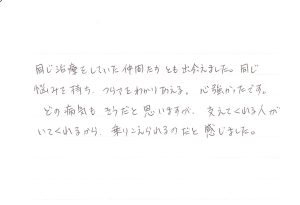 同じ治療をしていた仲間たちとも出会えました。同じ
悩みを持ち、つらさをわかりあえる。心強かったです。
どの病気もそうだと思いますが、支えてくれる人が
いてくれるから、乗りこえられるのだと感じました。